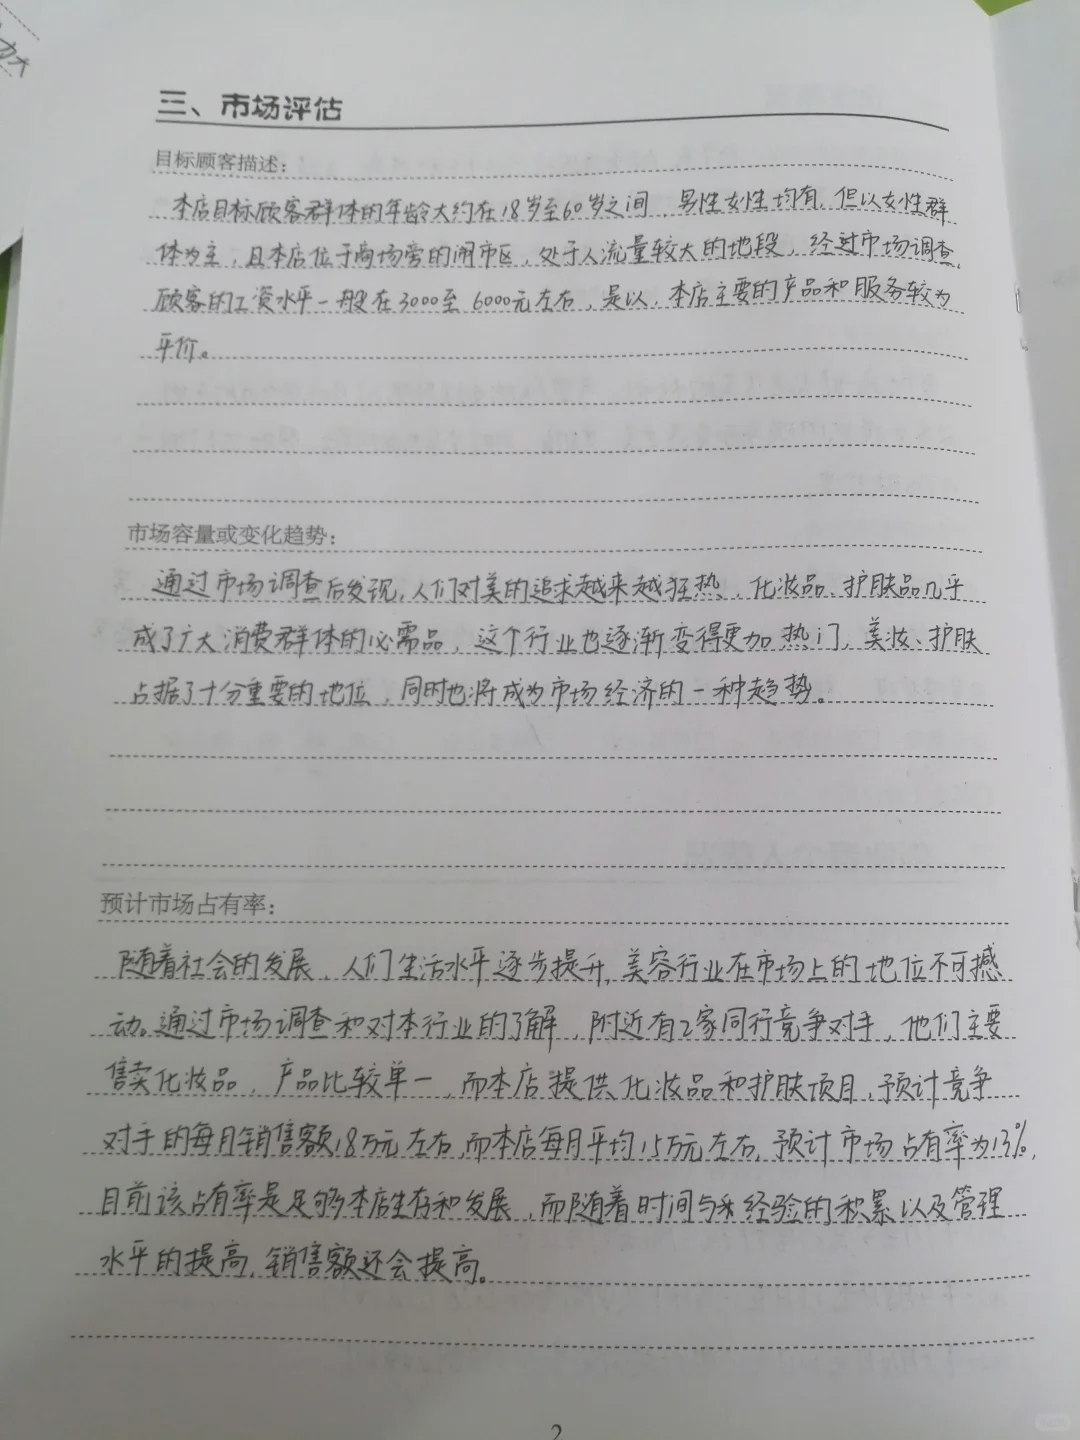 三、市场评估
目标顾客描述：
本店目标顾客群体的年龄大约在18岁至60岁之间，男性女性均有，但以女性群
体为主，且本店位于商场旁的闹市区，处于人流量较大的地段，经过市场调查，
顾客的工资水平一般在3000至6000元左右，是以，本店主要的产品和服务较为
平价。
市场容量或变化趋势：
通过市场调查后发现，人们对美的追求越来越狂热，化妆品、护肤品几乎
成了广大消费群体的必需品，这个行业也逐渐变得更加热门，美妆、护肤
占据了十分重要的地位，同时也将成为市场经济的一种趋势。
预计市场占有率：
随着社会的发展，人们生活水平逐步提升，美容行业在市场上的地位不可撼
动。通过市场调查和对本行业的了解，附近有2家同行竞争对手，他们主要
售卖化妆品，产品比较单一，而本店提供化妆品和护肤项目，预计竞争
对手的每月销售额18万元左右，而本店每月平均15万元左右，预计市场占有率为13%，
目前该占有率是足够本店生存和发展，而随着时间与经验的积累以及管理
水平的提高，销售额还会提高。
2